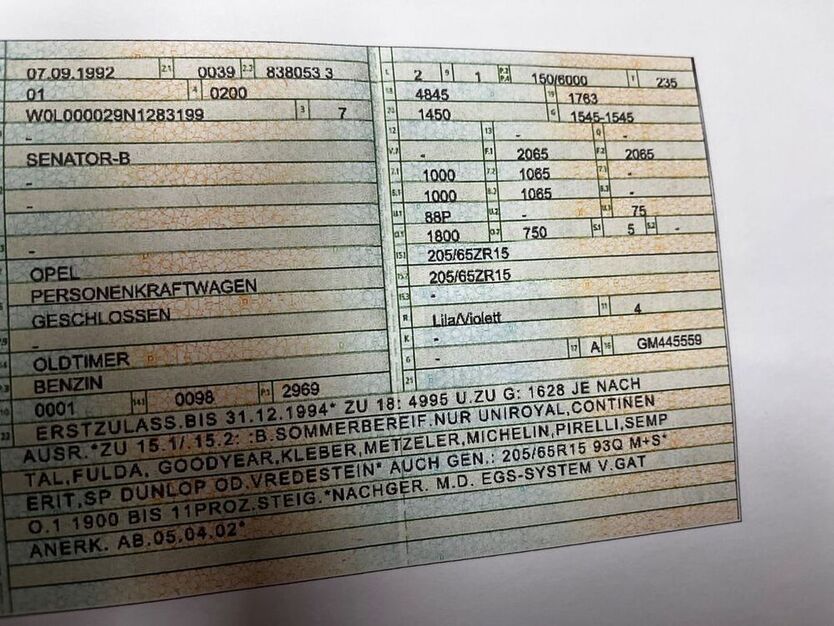 07.09.1992 2.1 0039 2.2 838053 3
01 4 0200
W0L000029N1283199 3 7
-
SENATOR-B
-
-
-
OPEL
PERSONENKRAFTWAGEN
GESCHLOSSEN
-
OLDTIMER
BENZIN
0001 14.1 0098 P.1 2969
L 2 9 1 P.2 P.4 150/6000 T 235
18 4845 19 1763
20 1450 G 1545-1545
12 - 13 - Q -
V.7 - F.1 2065 F.2 2065
7.1 1000 7.2 1065 7.3 -
8.1 1000 8.2 1065 8.3 -
U.1 88P U.2 - U.3 75
O.1 1800 O.2 750 S.1 5 S.2 -
15.1 205/65ZR15
15.2 205/65ZR15
15.3 -
R Lila/Violett 11 4
K -
6 - 17 A 16 GM445559
21
22 ERSTZULASS.BIS 31.12.1994* ZU 18: 4995 U.ZU G: 1628 JE NACH
AUSR.*ZU 15.1/.15.2: :B.SOMMERBEREIF.NUR UNIROYAL,CONTINEN
TAL,FULDA, GOODYEAR,KLEBER,METZELER,MICHELIN,PIRELLI,SEMP
ERIT,SP DUNLOP OD.VREDESTEIN* AUCH GEN.: 205/65R15 93Q M+S*
O.1 1900 BIS 11PROZ.STEIG.*NACHGER. M.D. EGS-SYSTEM V.GAT
ANERK. AB.05.04.02*